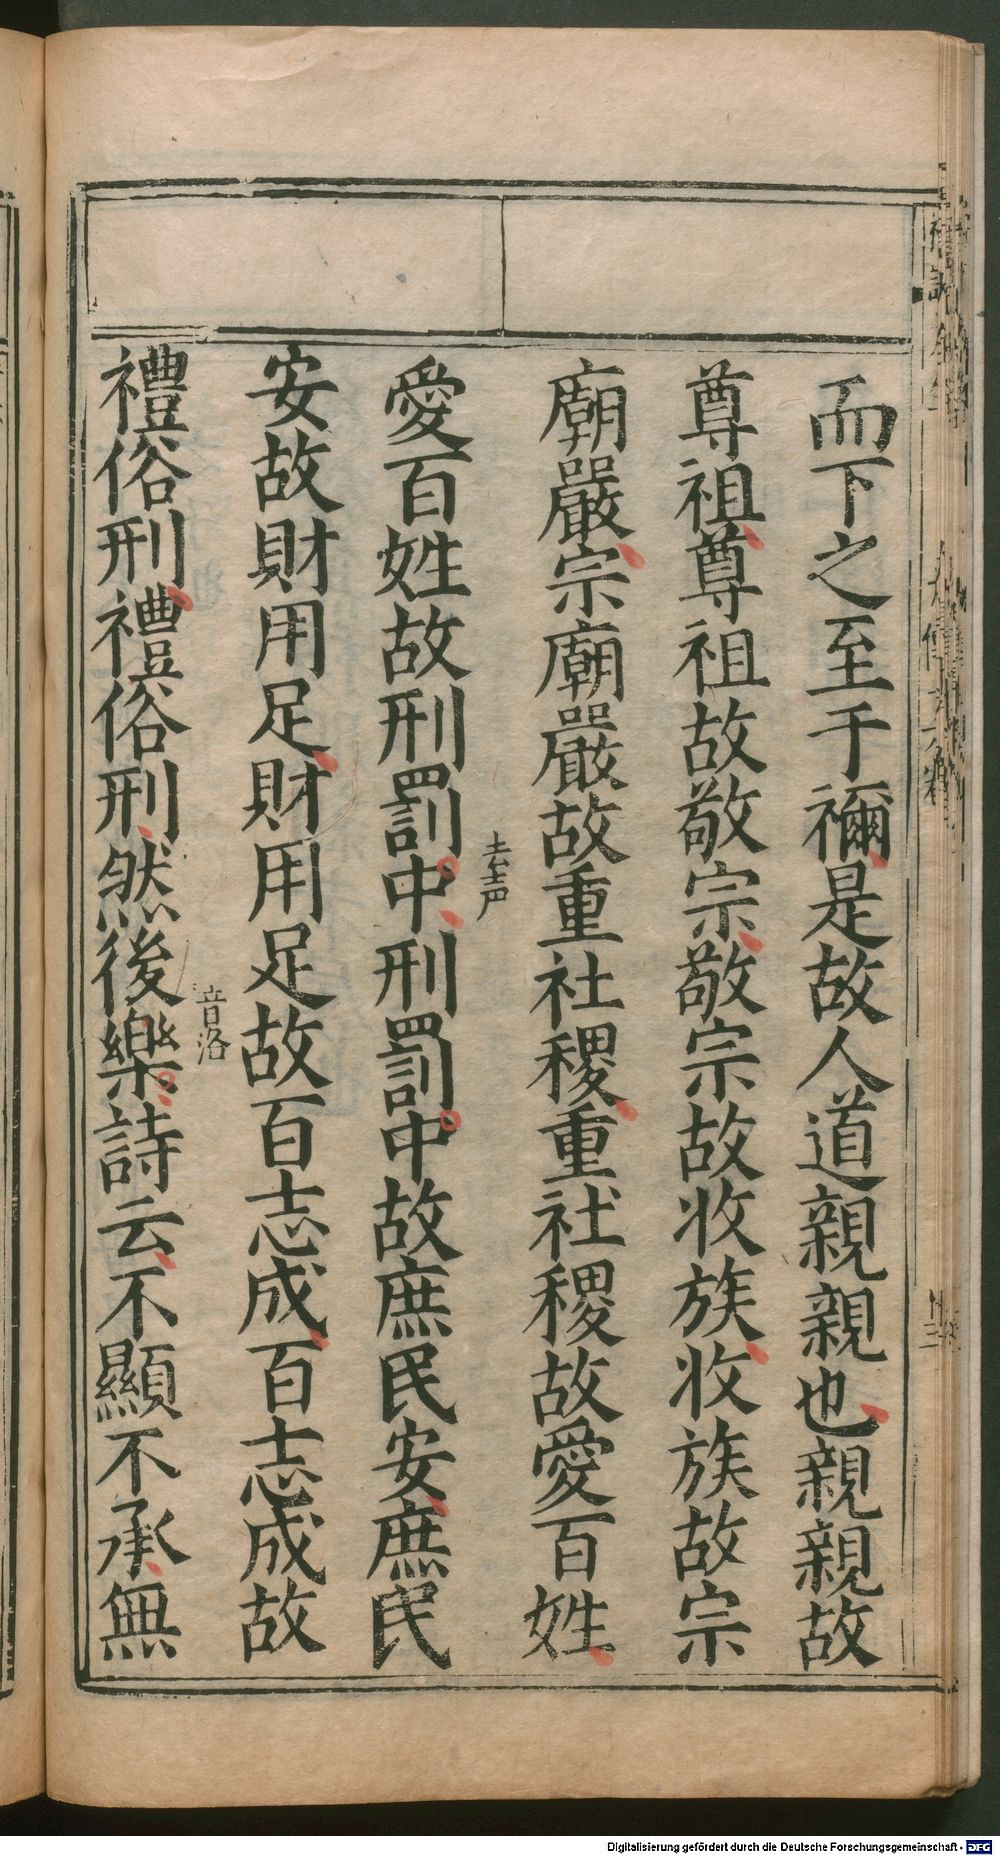 而下之至于禰是故人道親親也親親故
尊祖尊祖故敬宗敬宗故收族收族故宗
廟嚴宗廟嚴故重社稷重社稷故愛百姓
愛百姓故刑罰中刑罰中故庶民安庶民
去声
安故財用足財用足故百志成百志成故
禮俗刑禮俗刑然後樂詩云不顯不承無
音洛
Digitalisierung gefördert durch die Deutsche Forschungsgemeinschaft - DFG